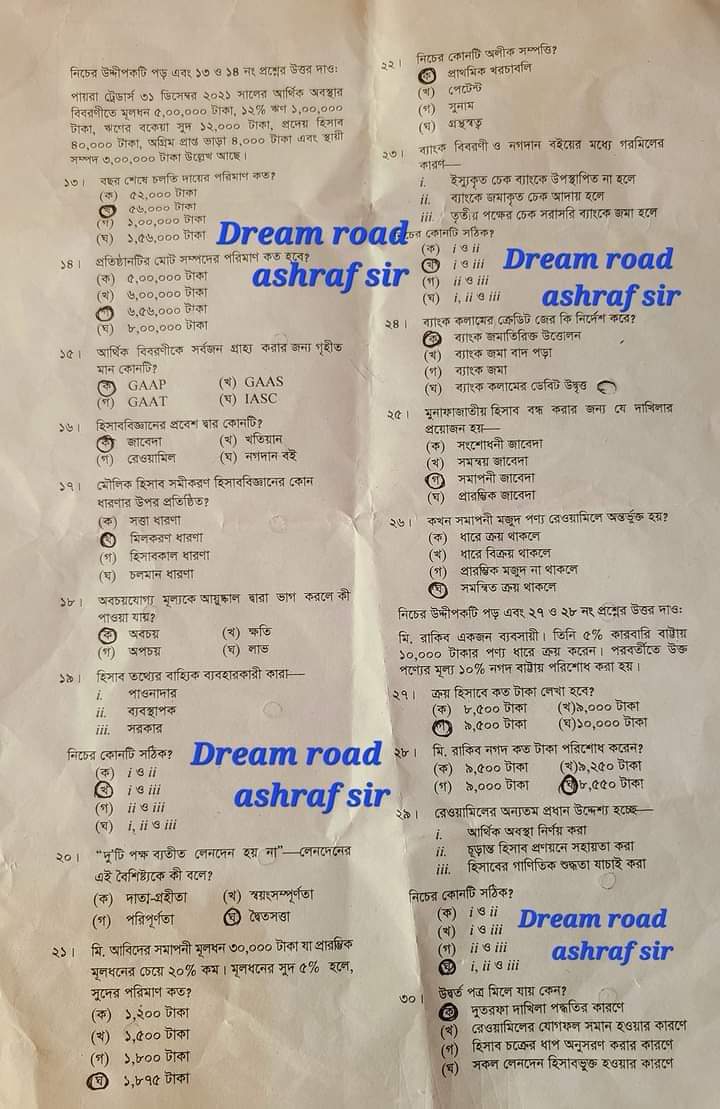 নিচের উদ্দীপকটি পড় এবং ১৩ ও ১৪ নং প্রশ্নের উত্তর দাও:
পায়রা ট্রেডার্স ৩১ ডিসেম্বর ২০২১ সালের আর্থিক অবস্থার
বিবরণীতে মূলধন ৫,০০,০০০ টাকা, ১২% ঋণ ১,০০,০০০
টাকা, ঋণের বকেয়া সুদ ১২,০০০ টাকা, প্রদেয় হিসাব
৪০,০০০ টাকা, অগ্রিম প্রাপ্ত ভাড়া ৪,০০০ টাকা এবং স্থায়ী
সম্পদ ৩,০০,০০০ টাকা উল্লেখ আছে।
১৩। বছর শেষে চলতি দায়ের পরিমাণ কত?
(ক) ৫২,০০০ টাকা
(খ) ৫৬,০০০ টাকা
(গ) ১,০০,০০০ টাকা
(ঘ) ১,৫৬,০০০ টাকা
Dream road
ashraf sir
১৪। প্রতিষ্ঠানটির মোট সম্পদের পরিমাণ কত হবে?
(ক) ৫,০০,০০০ টাকা
(খ) ৬,০০,০০০ টাকা
(গ) ৬,৫৬,০০০ টাকা
(ঘ) ৮,০০,০০০ টাকা
১৫। আর্থিক বিবরণীকে সর্বজন গ্রাহ্য করার জন্য গৃহীত
মান কোনটি?
(ক) GAAP (খ) GAAS
(গ) GAAT (ঘ) IASC
১৬। হিসাববিজ্ঞানের প্রবেশ দ্বার কোনটি?
(ক) জাবেদা (খ) খতিয়ান
(গ) রেওয়ামিল (ঘ) নগদান বই
১৭। মৌলিক হিসাব সমীকরণ হিসাববিজ্ঞানের কোন
ধারণার উপর প্রতিষ্ঠিত?
(ক) সত্তা ধারণা
(খ) মিলকরণ ধারণা
(গ) হিসাবকাল ধারণা
(ঘ) চলমান ধারণা
১৮। অবচয়যোগ্য মূল্যকে আয়ুষ্কাল দ্বারা ভাগ করলে কী
পাওয়া যায়?
(ক) অবচয় (খ) ক্ষতি
(গ) অপচয় (ঘ) লাভ
১৯। হিসাব তথ্যের বাহ্যিক ব্যবহারকারী কারা—
i. পাওনাদার
ii. ব্যবস্থাপক
iii. সরকার
নিচের কোনটি সঠিক?
(ক) i ও ii
(খ) i ও iii
(গ) ii ও iii
(ঘ) i, ii ও iii
Dream road
ashraf sir
২০। “দু'টি পক্ষ ব্যতীত লেনদেন হয় না”—লেনদেনের
এই বৈশিষ্ট্যকে কী বলে?
(ক) দাতা-গ্রহীতা (খ) স্বয়ংসম্পূর্ণতা
(গ) পরিপূর্ণতা (ঘ) দ্বৈতসত্তা
২১। মি. আবিদের সমাপনী মূলধন ৩০,০০০ টাকা যা প্রারম্ভিক
মূলধনের চেয়ে ২০% কম। মূলধনের সুদ ৫% হলে,
সুদের পরিমাণ কত?
(ক) ১,২০০ টাকা
(খ) ১,৫০০ টাকা
(গ) ১,৮০০ টাকা
(ঘ) ১,৮৭৫ টাকা
২২। নিচের কোনটি অলীক সম্পত্তি?
(ক) প্রাথমিক খরচাবলি
(খ) পেটেন্ট
(গ) সুনাম
(ঘ) গ্রন্থস্বত্ব
২৩। ব্যাংক বিবরণী ও নগদান বইয়ের মধ্যে গরমিলের
কারণ—
i. ইস্যুকৃত চেক ব্যাংকে উপস্থাপিত না হলে
ii. ব্যাংকে জমাকৃত চেক আদায় হলে
iii. তৃতীয় পক্ষের চেক সরাসরি ব্যাংকে জমা হলে
নিচের কোনটি সঠিক?
(ক) i ও ii
(খ) i ও iii
(গ) ii ও iii
(ঘ) i, ii ও iii
Dream road
ashraf sir
২৪। ব্যাংক কলামের ক্রেডিট জের কি নির্দেশ করে?
(ক) ব্যাংক জমাতিরিক্ত উত্তোলন
(খ) ব্যাংক জমা বাদ পড়া
(গ) ব্যাংক জমা
(ঘ) ব্যাংক কলামের ডেবিট উদ্বৃত্ত
২৫। মুনাফাজাতীয় হিসাব বন্ধ করার জন্য যে দাখিলার
প্রয়োজন হয়—
(ক) সংশোধনী জাবেদা
(খ) সমন্বয় জাবেদা
(গ) সমাপনী জাবেদা
(ঘ) প্রারম্ভিক জাবেদা
২৬। কখন সমাপনী মজুদ পণ্য রেওয়ামিলে অন্তর্ভুক্ত হয়?
(ক) ধারে ক্রয় থাকলে
(খ) ধারে বিক্রয় থাকলে
(গ) প্রারম্ভিক মজুদ না থাকলে
(ঘ) সমন্বিত ক্রয় থাকলে
নিচের উদ্দীপকটি পড় এবং ২৭ ও ২৮ নং প্রশ্নের উত্তর দাও:
মি. রাকিব একজন ব্যবসায়ী। তিনি ৫% কারবারি বাট্টায়
১০,০০০ টাকার পণ্য ধারে ক্রয় করেন। পরবর্তীতে উক্ত
পণ্যের মূল্য ১০% নগদ বাট্টায় পরিশোধ করা হয়।
২৭। ক্রয় হিসাবে কত টাকা লেখা হবে?
(ক) ৮,৫০০ টাকা (খ)৯,০০০ টাকা
(গ) ৯,৫০০ টাকা (ঘ)১০,০০০ টাকা
২৮। মি. রাকিব নগদ কত টাকা পরিশোধ করেন?
(ক) ৯,৫০০ টাকা (খ)৯,২৫০ টাকা
(গ) ৯,০০০ টাকা (ঘ)৮,৫৫০ টাকা
২৯। রেওয়ামিলের অন্যতম প্রধান উদ্দেশ্য হচ্ছে—
i. আর্থিক অবস্থা নির্ণয় করা
ii. চূড়ান্ত হিসাব প্রণয়নে সহায়তা করা
iii. হিসাবের গাণিতিক শুদ্ধতা যাচাই করা
নিচের কোনটি সঠিক?
(ক) i ও ii
(খ) i ও iii
(গ) ii ও iii
(ঘ) i, ii ও iii
Dream road
ashraf sir
৩০। উদ্বর্ত পত্র মিলে যায় কেন?
(ক) দুতরফা দাখিলা পদ্ধতির কারণে
(খ) রেওয়ামিলের যোগফল সমান হওয়ার কারণে
(গ) হিসাব চক্রের ধাপ অনুসরণ করার কারণে
(ঘ) সকল লেনদেন হিসাবভুক্ত হওয়ার কারণে